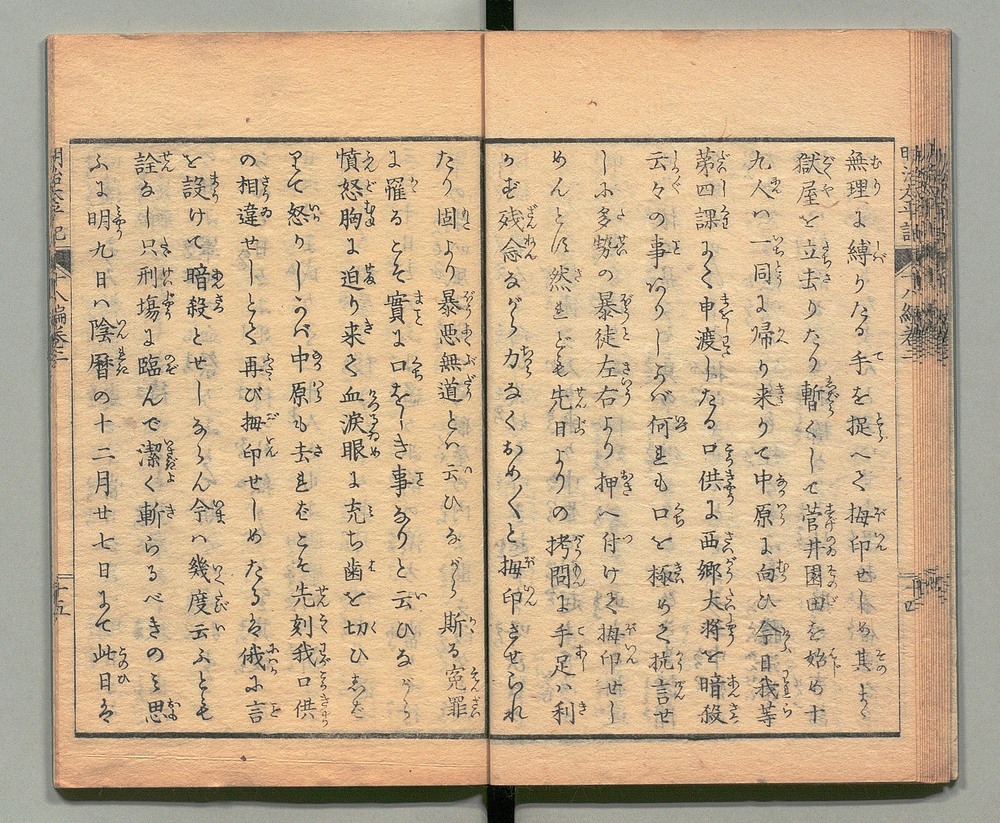 無理に縛りたる手を捉へて拇印せしめ其まゝ
獄屋を立去りたり暫くして菅井園田を始め十
九人ハ一同に帰り来りて中原に向ひ今日我等
第四課にて申渡したる口供に西郷大将を暗殺
云々の事ありしかバ何れも口を極めて抗言せ
しに多勢の暴徒左右より押へ付けて拇印せし
めんとす然れども先日よりの拷問に手足ハ利
かず残念ながら力なくおめ〳〵と拇印させられ
たり固より暴悪無道とハ云ひながら斯る冤罪
に罹るとそ實に口をしき事なりと云ひながら
憤怒胸に迫り来て血涙眼に充ち歯を切ひしを
りて怒りしかバ中原も去れバこそ先刻我口供
の相違せしとて再び拇印せしめたるは俄に言
を設けて暗殺とせしならん今ハ幾度云ふとも
詮なし只刑場に臨んで潔く斬らるべきのミ思
ふに明九日ハ陰暦の十二月廿七日にて此日は
明治太平記
十八編巻二
十五